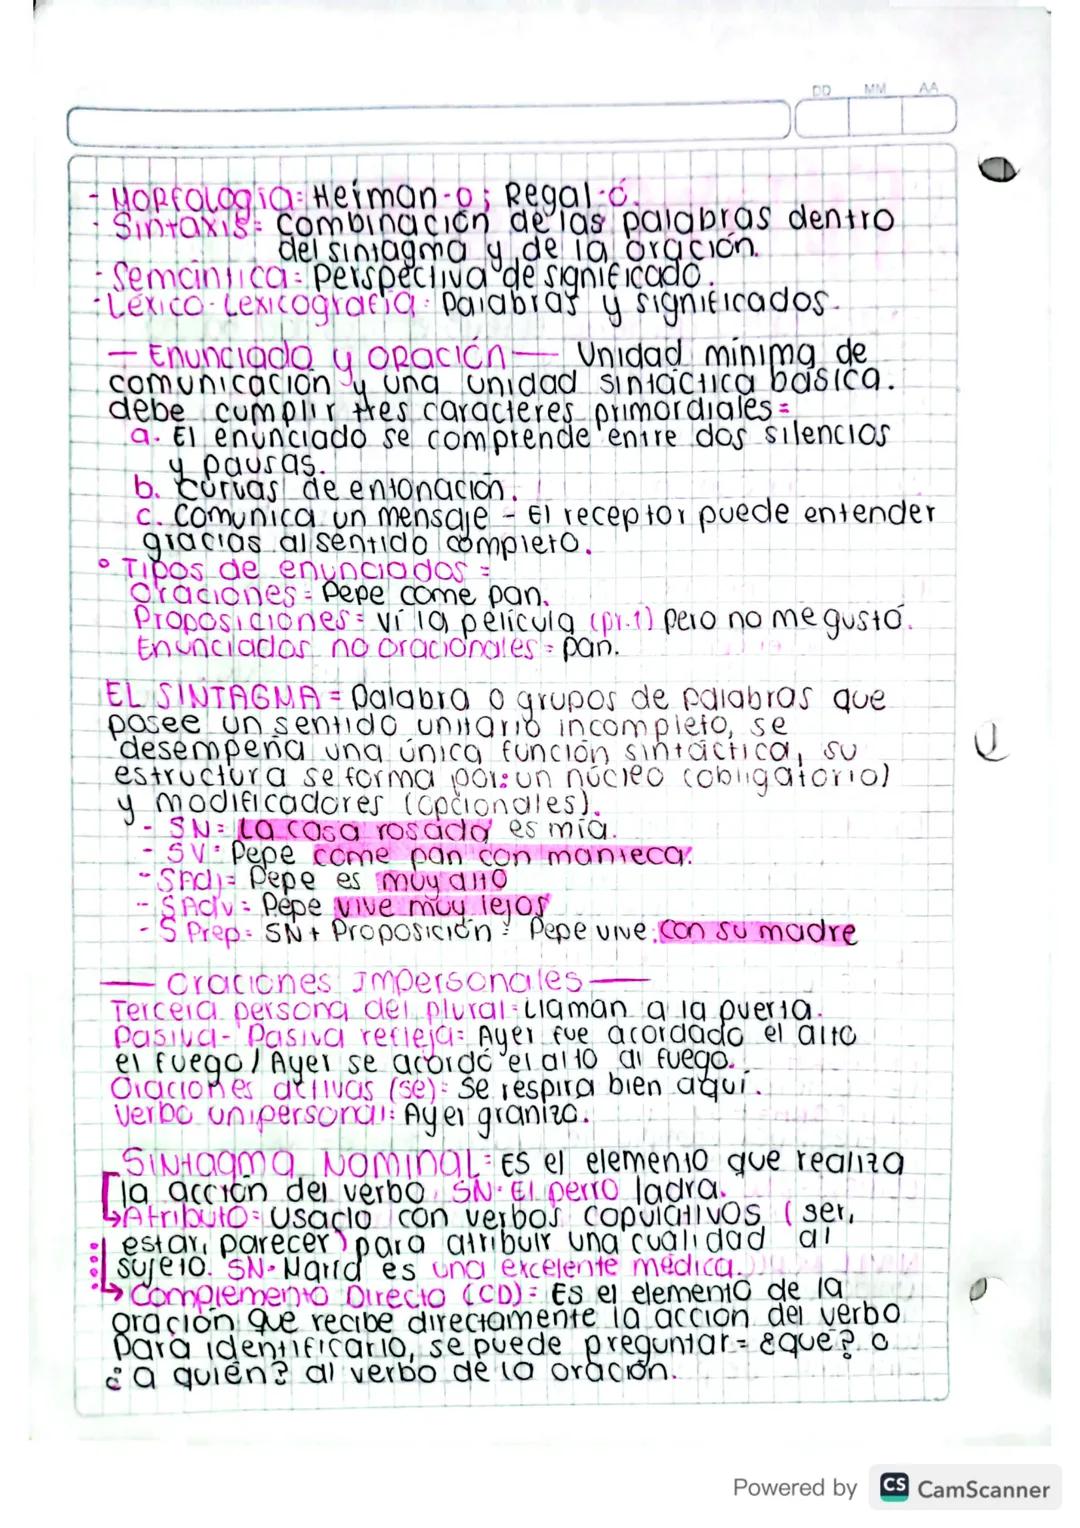 DD MM AA
- Morfología = Herman-o; Regal-ó.
- Sintaxis = combinación de las palabras dentro
del sintagma y de la oración.
- Semántica = Perspectiva de significado.
- Léxico-Lexicografía = Palabras y significados.
— Enunciado y oración — Unidad mínima de
comunicación y una unidad sintáctica básica.
debe cumplir tres caracteres primordiales =
a. El enunciado se comprende entre dos silencios
y pausas.
b. Curvas de entonación.
c. Comunica un mensaje - El receptor puede entender
gracias al sentido completo.
° Tipos de enunciados =
Oraciones = Pepe come pan.
Proposiciones = ví la película (pr.1) pero no me gustó.
Enunciados no oracionales = pan.
EL SINTAGMA = Palabra o grupos de palabras que
posee un sentido unitario incompleto, se
desempeña una única función sintáctica, su
estructura se forma por: un núcleo (obligatorio)
y modificadores (opcionales).
- SN = La casa rosada es mía.
- SV = Pepe come pan con manteca.
- SAdj = Pepe es muy alto
- SAdv = Pepe vive muy lejos
- S Prep = SN + Proposición = Pepe vive con su madre
— Oraciones Impersonales —
Tercera persona del plural = Llaman a la puerta.
Pasiva - Pasiva refleja = Ayer fue acordado el alto
el fuego / Ayer se acordó el alto al fuego.
Oraciones activas (se) = Se respira bien aquí.
Verbo unipersonal: Ayer granizo.
Sintagma Nominal = Es el elemento que realiza
la acción del verbo. SN = El perro ladra.
Atributo = Usado con verbos copulativos (ser,
estar, parecer) para atribuir una cualidad al
sujeto. SN = María es una excelente médica.
Complemento Directo (CD) = Es el elemento de la
oración que recibe directamente la acción del verbo
Para identificarlo, se puede preguntar = ¿que? o
¿a quién? al verbo de la oración.
Powered by CS CamScanner